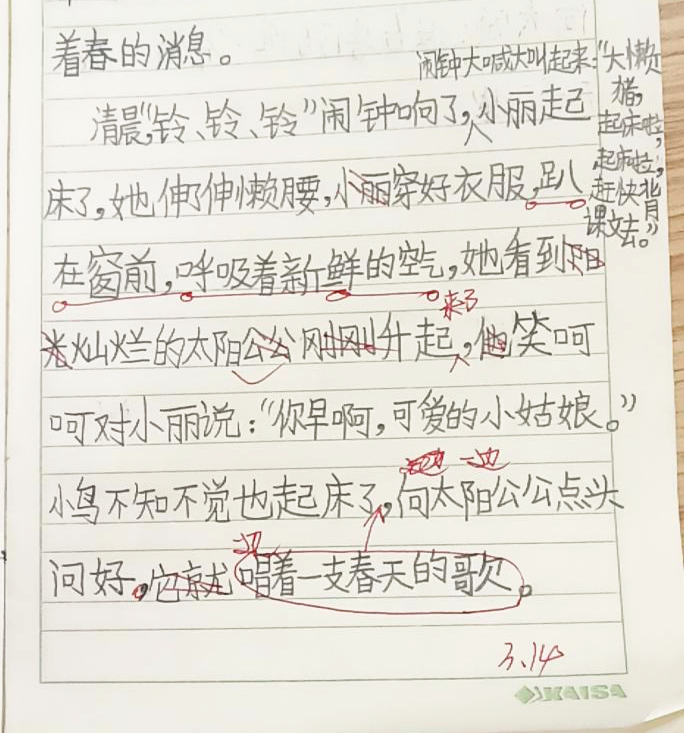 着春的消息。
闹钟大喊大叫起来:“大懒
猪,
起床啦,
起床啦,
赶快背
课文去。”
清晨,“铃、铃、铃”闹钟响了,小丽起
床了,她伸了伸懒腰,小丽穿好衣服,趴
在窗前,呼吸着新鲜的空气,她看到阳
光灿烂的太阳公公刚刚升起,他笑呵
来了
呵对小丽说:“你早啊,可爱的小姑娘。”
一边
小鸟不知不觉也起床了,向太阳公公点头
边
问好,它就唱着一支春天的歌。
3.14
KAISA